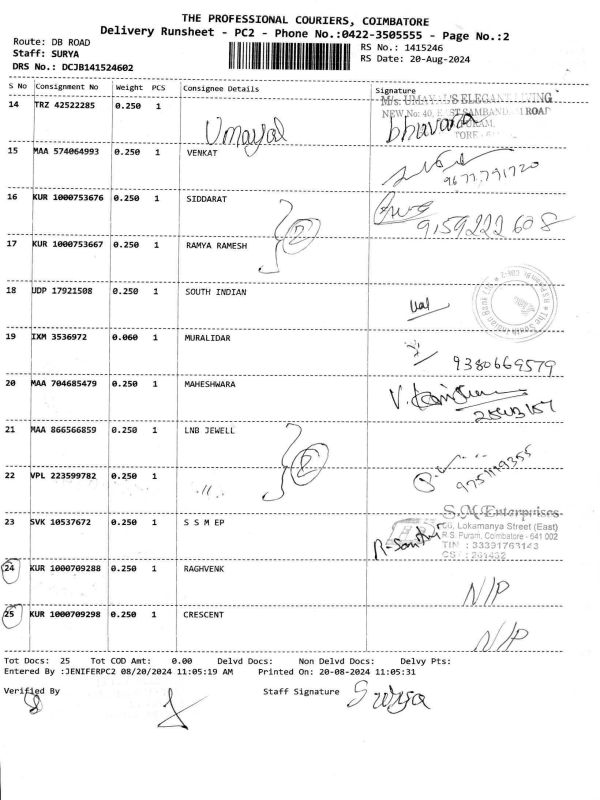 THE PROFESSIONAL COURIERS, COIMBATORE
Delivery Runsheet - PC2 - Phone No.:0422-3505555 - Page No.:2
Route: DB ROAD
Staff: SURYA
DRS No.: DCJB141524602
RS No.: 1415246
RS Date: 20-Aug-2024
S No Consignment No Weight PCS Consignee Details Signature
14 TRZ 42522285 0.250 1 Umayal
15 MAA 574064993 0.250 1 VENKAT 9677791720
16 KUR 1000753676 0.250 1 SIDDARAT 9159222608
17 KUR 1000753667 0.250 1 RAMYA RAMESH
2
18 UDP 17921508 0.250 1 SOUTH INDIAN
19 IXM 3536972 0.060 1 MURALIDAR 9380669579
20 MAA 704685479 0.250 1 MAHESHWARA
21 MAA 866566859 0.250 1 LNB JEWELL
2
22 VPL 223599782 0.250 1 .11. 9751119355
23 SVK 10537672 0.250 1 S S M EP
S.M.Enterprises
66, Lokamanya Street (East)
R.S. Puram, Coimbatore - 641 002
TIN : 33391763143
24 KUR 1000709288 0.250 1 RAGHVENK N/P
25 KUR 1000709298 0.250 1 CRESCENT N/P
Tot Docs: 25 Tot COD Amt: 0.00 Delvd Docs: Non Delvd Docs: Delvy Pts:
Entered By :JENIFERPC2 08/20/2024 11:05:19 AM Printed On: 20-08-2024 11:05:31
Verified By Staff Signature Surya